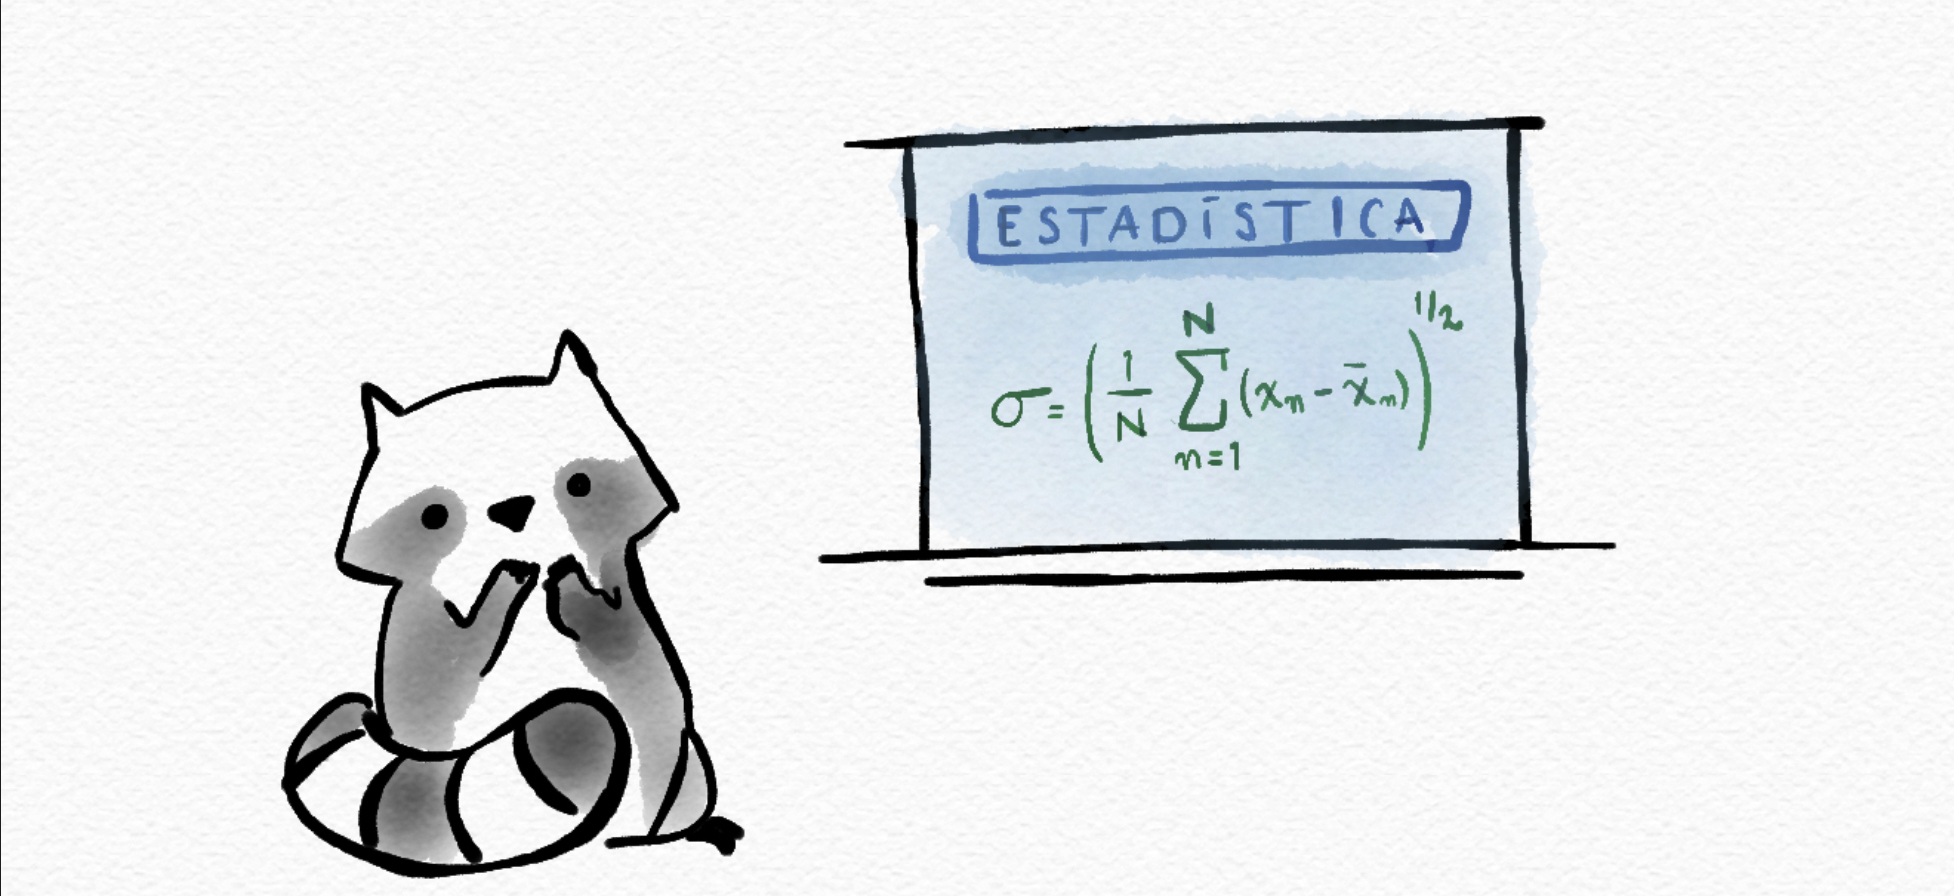 ESTADÍSTICA
σ = ( 1/N ∑_{n=1}^{N} (x_n - x̄_n) )^{1/2}